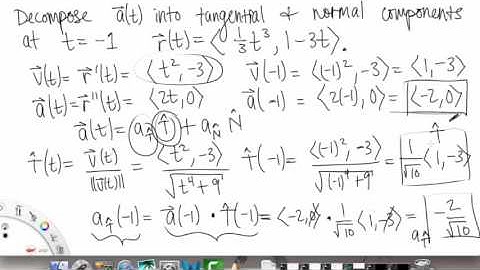 Decompose a⃗(t) into tangential & normal components
at t=-1 r⃗(t)=⟨⅓t³, 1-3t⟩.
v⃗(t)=r⃗'(t)=⟨t², -3⟩ v⃗(-1)=⟨(-1)², -3⟩=⟨1,-3⟩
a⃗(t)=r⃗"(t)=⟨2t,0⟩ a⃗(-1)=⟨2(-1),0⟩=⟨-2,0⟩
a⃗(t)=a_T̂ T̂ + a_N̂ N̂ T̂
T̂(t)=v⃗(t)/||v⃗(t)||=⟨t²,-3⟩/√(t⁴+9) T̂(-1)=⟨(-1)²,-3⟩/√((-1)⁴+9)=1/√10⟨1,-3⟩
a_T̂(-1)=a⃗(-1)·T̂(-1)=⟨-2,0⟩·1/√10⟨1,-3⟩=-2/√10
a_T̂